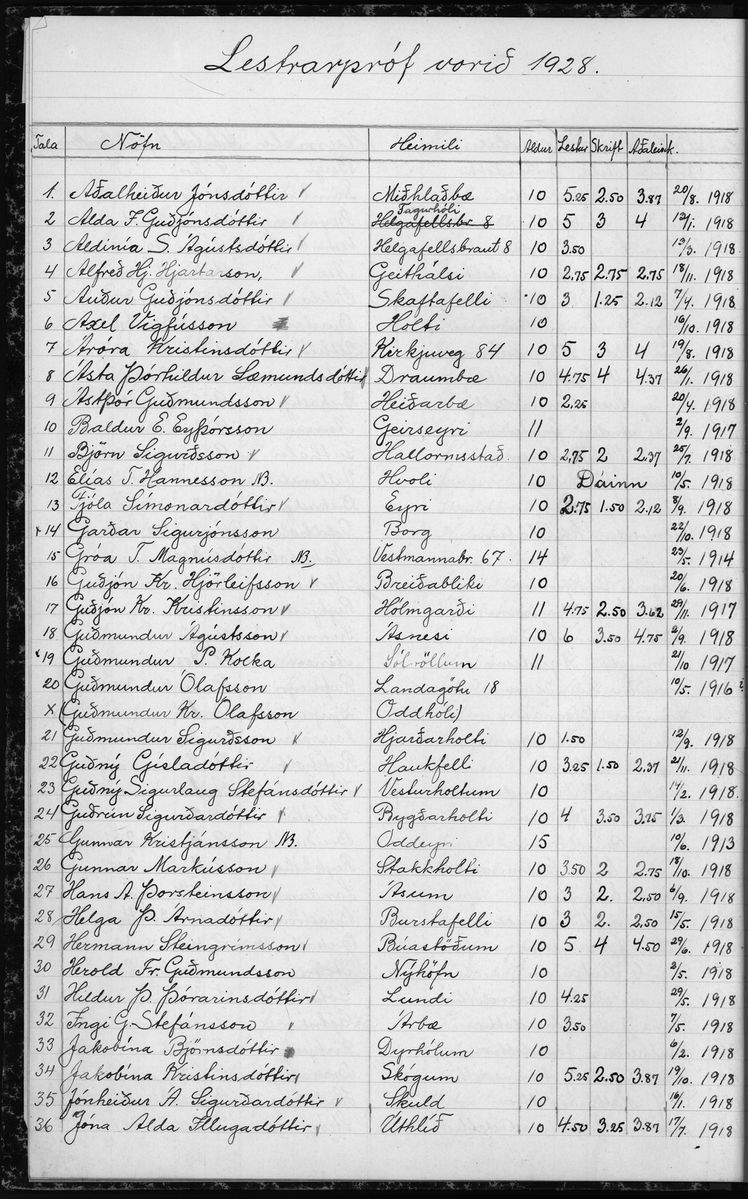 Lestrarpróf vorið 1928.
Tala Nöfn Heimili Aldur Lestur Skrift Aðaleink.
1. Aðalheiður Jónsdóttir v Miðhlaðbæ 10 5.25 2.50 3.87 20/8. 1918
Fagurhóli
2 Alda F. Guðjónsdóttir v Helgafellsbr 8 10 5 3 4 12/1. 1918
3 Aldinía S. Ágústsdóttir v Helgafellsbraut 8 10 3.50 19/3. 1918
4 Alfreð Hj. Hjartarson, v Geithálsi 10 2.75 2.75 2.75 18/11. 1918
5 Auður Guðjónsdóttir v Skaftafelli 10 3 1.25 2.12 7/4. 1918
6 Axel Vigfússon Holti 10 16/10. 1918
7 Áróra Kristinsdóttir v Kirkjuveg 84 10 5 3 4 19/8. 1918
8 Ásta Þórhildur Sæmundsdóttir v Draumbæ 10 4.75 4 4.37 26/1. 1918
9 Ástþór Guðmundsson v Heiðarbæ 10 2.25 20/4. 1918
10 Baldur E. Eyþórsson Geirseyri 11 2/9. 1917
11 Björn Sigurðsson v Hallormsstað 10 2.75 2 2.37 25/7. 1918
12 Elías T. Hannesson NB. Hvoli 10 Dáinn 10/5. 1918
13 Fjóla Símonardóttir v Eyri 10 2.75 1.50 2.12 8/9. 1918
x14 Garðar Sigurjónsson Borg 10 22/10. 1918
15 Gróa T. Magnúsdóttir NB. Vestmannabr. 67. 14 23/5. 1914
16 Guðjón Kr. Hjörleifsson v Breiðabliki 10 20/6. 1918
17 Guðjón Kr. Kristinsson v Hólmgarði 11 4.75 2.50 3.62 29/11. 1917
18 Guðmundur Ágústsson v Ásnesi 10 6 3.50 4.75 2/9. 1918
x19 Guðmundur P. Kolka Sólvöllum 11 21/10 1917
20 Guðmundur Ólafsson Landagötu 18 10/5. 1916
X (Guðmundur Kr. Ólafsson Oddhól)
21 Guðmundur Sigurðsson v Hjarðarholti 10 1.50 12/9. 1918
22 Guðný Gísladóttir v Haukfelli 10 3.25 1.50 2.37 21/11. 1918
23 Guðný Sigurlaug Stefánsdóttir v Vesturholtum 10 14/2. 1918.
24 Guðrún Sigurðardóttir v Bygðarholti 10 4 3.50 3.75 1/3. 1918
25 Gunnar Kristjánsson NB. Oddeyri 15 10/6. 1913
26 Gunnar Markússon v Stakkholti 10 3.50 2 2.75 18/10. 1918
27 Hans A. Þorsteinsson v Ásum 10 3 2. 2.50 6/9. 1918
28 Helga Þ. Árnadóttir v Burstafelli 10 3 2. 2.50 15/5. 1918
29 Hermann Steingrímsson v Búastöðum 10 5 4 4.50 29/6. 1918
30 Herold Fr. Guðmundsson Nýhöfn 10 2/5. 1918
31 Hildur Þ. Þórarinsdóttir v Lundi 10 4.25 29/5. 1918
32 Ingi G. Stefánsson v Árbæ 10 3.50 7/5. 1918
33 Jakobína Björnsdóttir Dyrhólum 10 6/2. 1918
34 Jakobína Kristinsdóttir v Skógum 10 5.25 2.50 3.87 19/10. 1918
35 Jónheiður A. Sigurðardóttir v Skuld 10 16/1. 1918
36 Jóna Alda Illugadóttir v Úthlíð 10 4.50 3.25 3.87 17/7. 1918